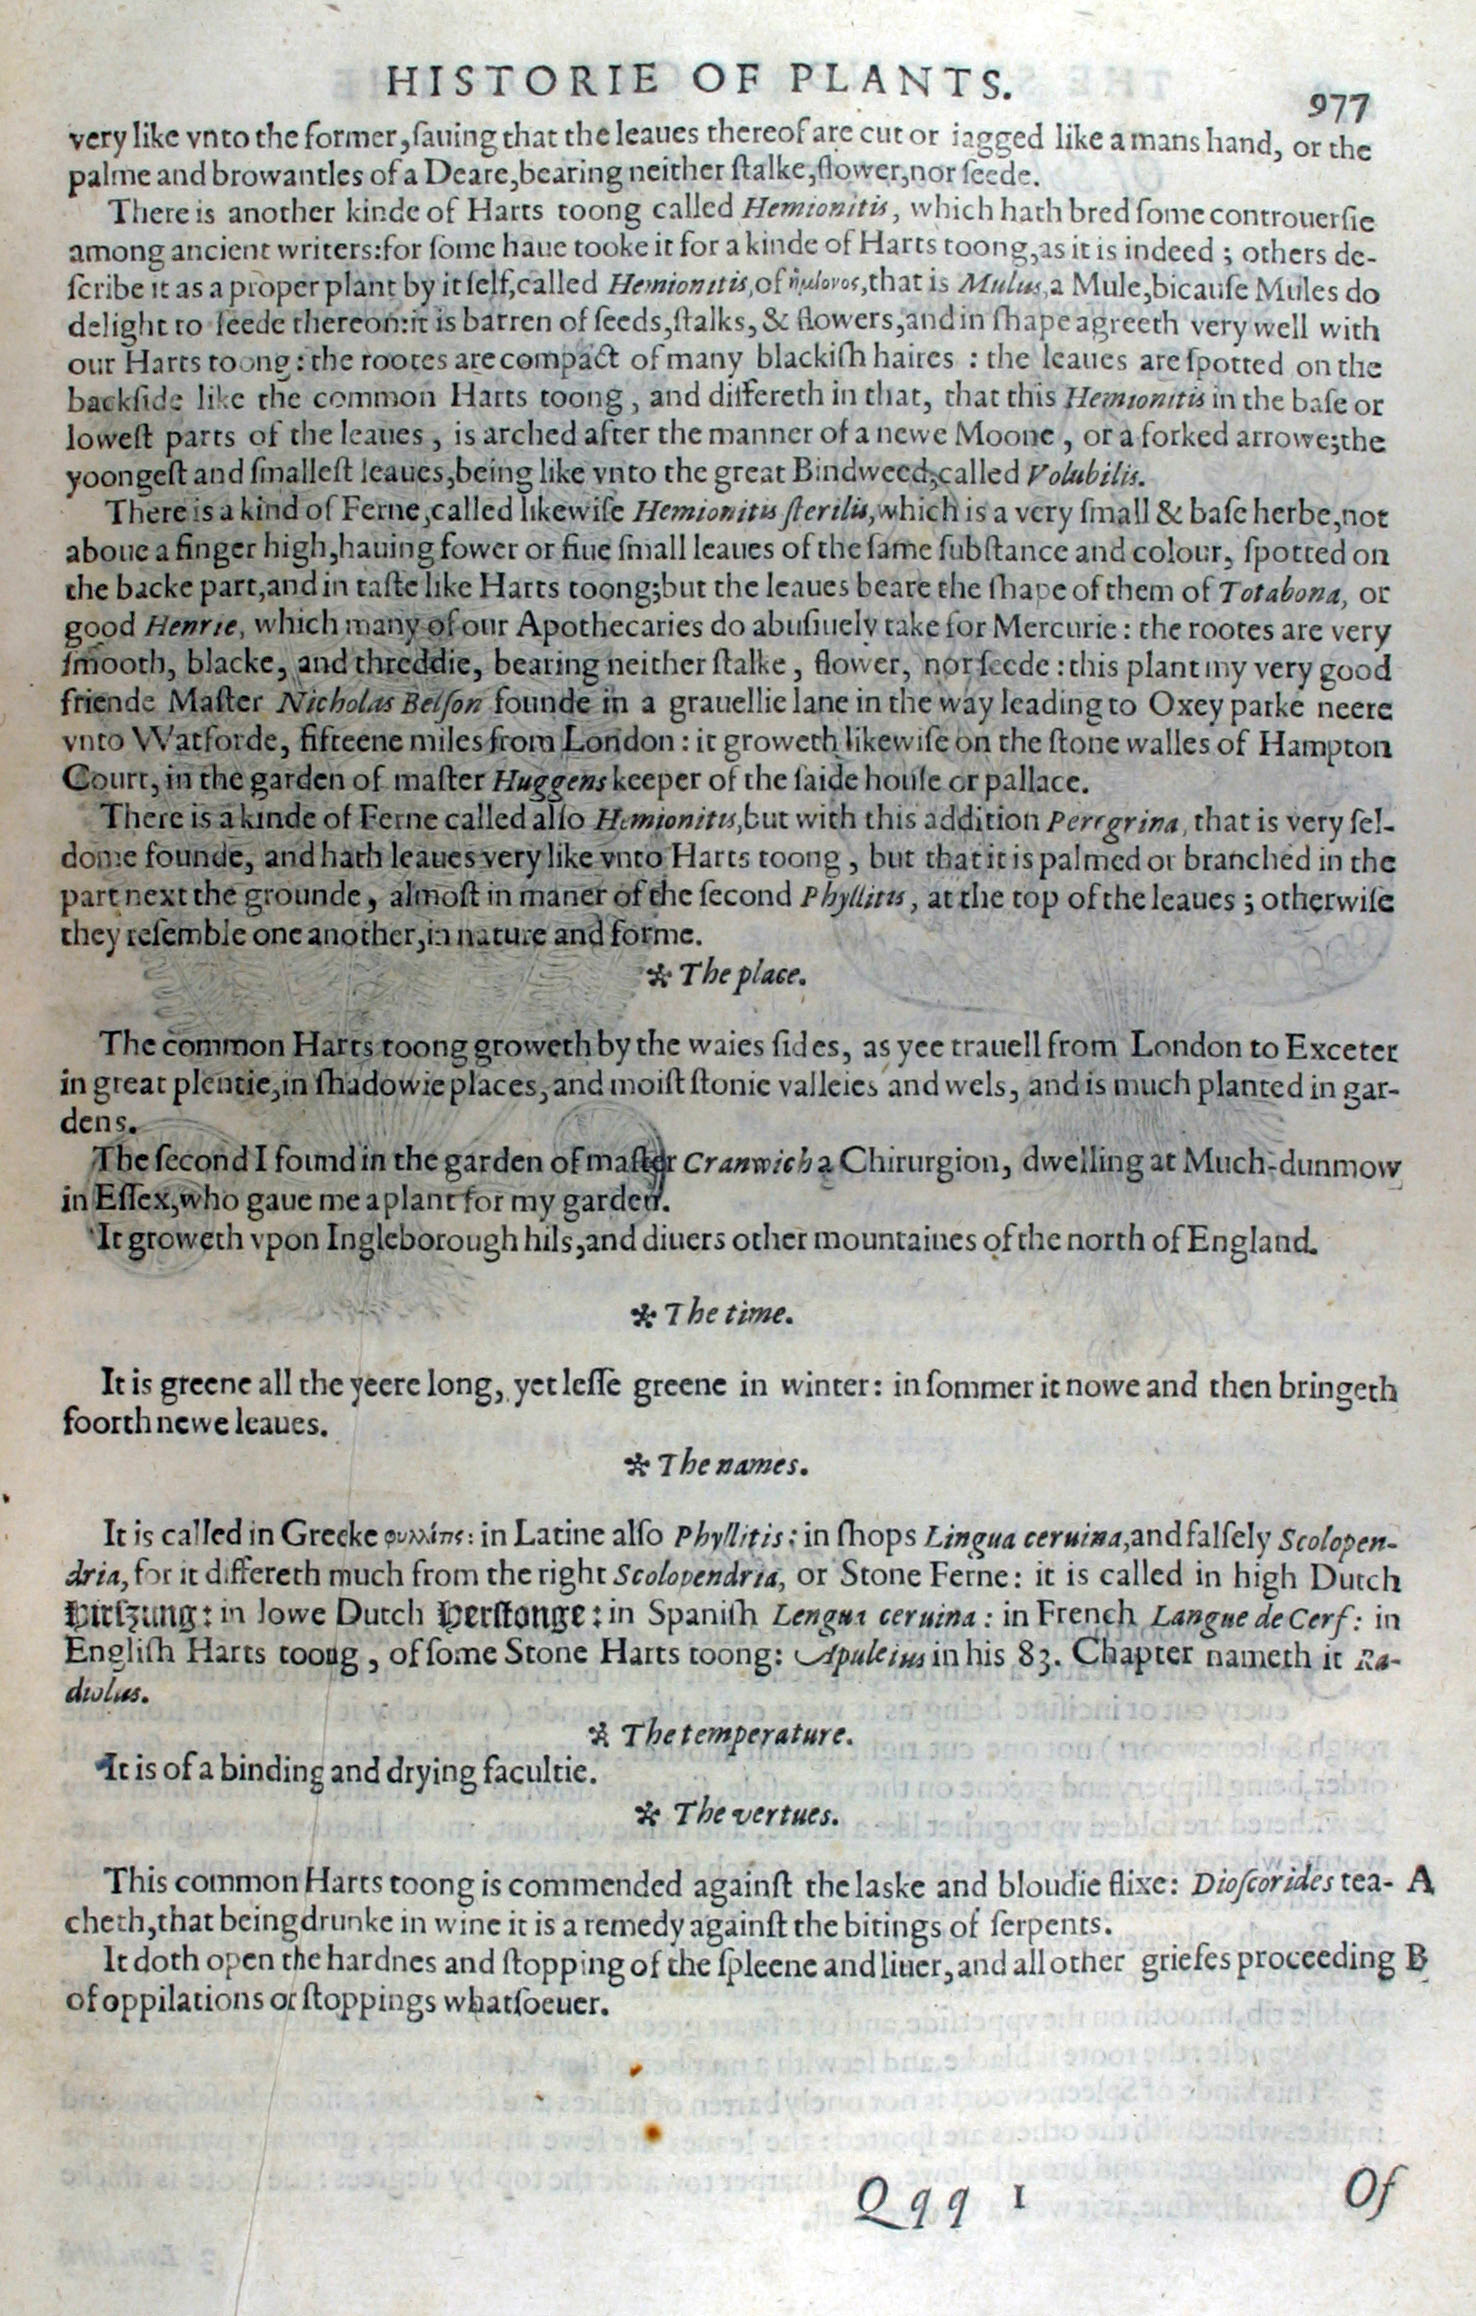 HISTORIE OF PLANTS.
977
very like vnto the former, ſauing that the leaues thereof are cut or iagged like a mans hand, or the
palme and browantles of a Deare, bearing neither ſtalke, flower, nor ſeede.
There is another kinde of Harts toong called Hemionitis, which hath bred ſome controuerſie
among ancient writers: for ſome haue tooke it for a kinde of Harts toong, as it is indeed ; others de-
ſcribe it as a proper plant by it ſelf, called Hemionitis, of ἡμίονος, that is Mulus, a Mule, bicauſe Mules do
delight to feede thereon: it is barren of ſeeds, ſtalks, & flowers, and in ſhape agreeth very well with
our Harts toong: the rootes are compact of many blackiſh haires : the leaues are ſpotted on the
backſide like the common Harts toong, and differeth in that, that this Hemionitis in the baſe or
loweſt parts of the leaues, is arched after the manner of a newe Moone, or a forked arrowe; the
yoongeſt and ſmalleſt leaues, being like vnto the great Bindweed, called Volubilis.
There is a kind of Ferne, called likewiſe Hemionitis ſterilis, which is a very ſmall & baſe herbe, not
aboue a finger high, hauing fower or fiue ſmall leaues of the ſame ſubſtance and colour, ſpotted on
the backe part, and in taſte like Harts toong; but the leaues beare the ſhape of them of Totabona, or
good Henrie, which many of our Apothecaries do abuſiuely take for Mercurie: the rootes are very
ſmooth, blacke, and threddie, bearing neither ſtalke, flower, nor ſeede: this plant my very good
friende Maſter Nicholas Belſon founde in a grauellie lane in the way leading to Oxey parke neere
vnto Watforde, fifteene miles from London: it groweth likewiſe on the ſtone walles of Hampton
Court, in the garden of maſter Huggens keeper of the ſaide houſe or pallace.
There is a kinde of Ferne called alſo Hemionitis, but with this addition Peregrina, that is very ſel-
dome founde, and hath leaues very like vnto Harts toong, but that it is palmed or branched in the
part next the grounde, almoſt in maner of the ſecond Phyllitis, at the top of the leaues ; otherwiſe
they reſemble one another, in nature and forme.
✻ The place.
The common Harts toong groweth by the waies ſides, as yee trauell from London to Exceter
in great plentie, in ſhadowie places, and moiſt ſtonie valleies and wels, and is much planted in gar-
dens.
The ſecond I found in the garden of maſter Cranwich a Chirurgion, dwelling at Much-dunmow
in Eſſex, who gaue me a plant for my garden.
It groweth vpon Ingleborough hils, and diuers other mountaines of the north of England.
✻ The time.
It is greene all the yeere long, yet leſſe greene in winter: in ſommer it nowe and then bringeth
foorth newe leaues.
✻ The names.
It is called in Greeke φυλλίτις: in Latine alſo Phyllitis: in ſhops Lingua ceruina, and falſely Scolopen-
dria, for it differeth much from the right Scolopendria, or Stone Ferne: it is called in high Dutch
Hirſzung: in lowe Dutch Herſtonge: in Spaniſh Lengua ceruina: in French Langue de Cerf: in
Engliſh Harts toong, of ſome Stone Harts toong: Apuleius in his 83. Chapter nameth it Ra-
diolus.
✻ The temperature.
It is of a binding and drying facultie.
✻ The vertues.
This common Harts toong is commended againſt the laske and bloudie flixe: Dioſcorides tea- A
cheth, that being drunke in wine it is a remedy againſt the bitings of ſerpents.
It doth open the hardnes and ſtopping of the ſpleene and liuer, and all other griefes proceeding B
of oppilations or ſtoppings whatſoeuer.
Qqq 1
Of